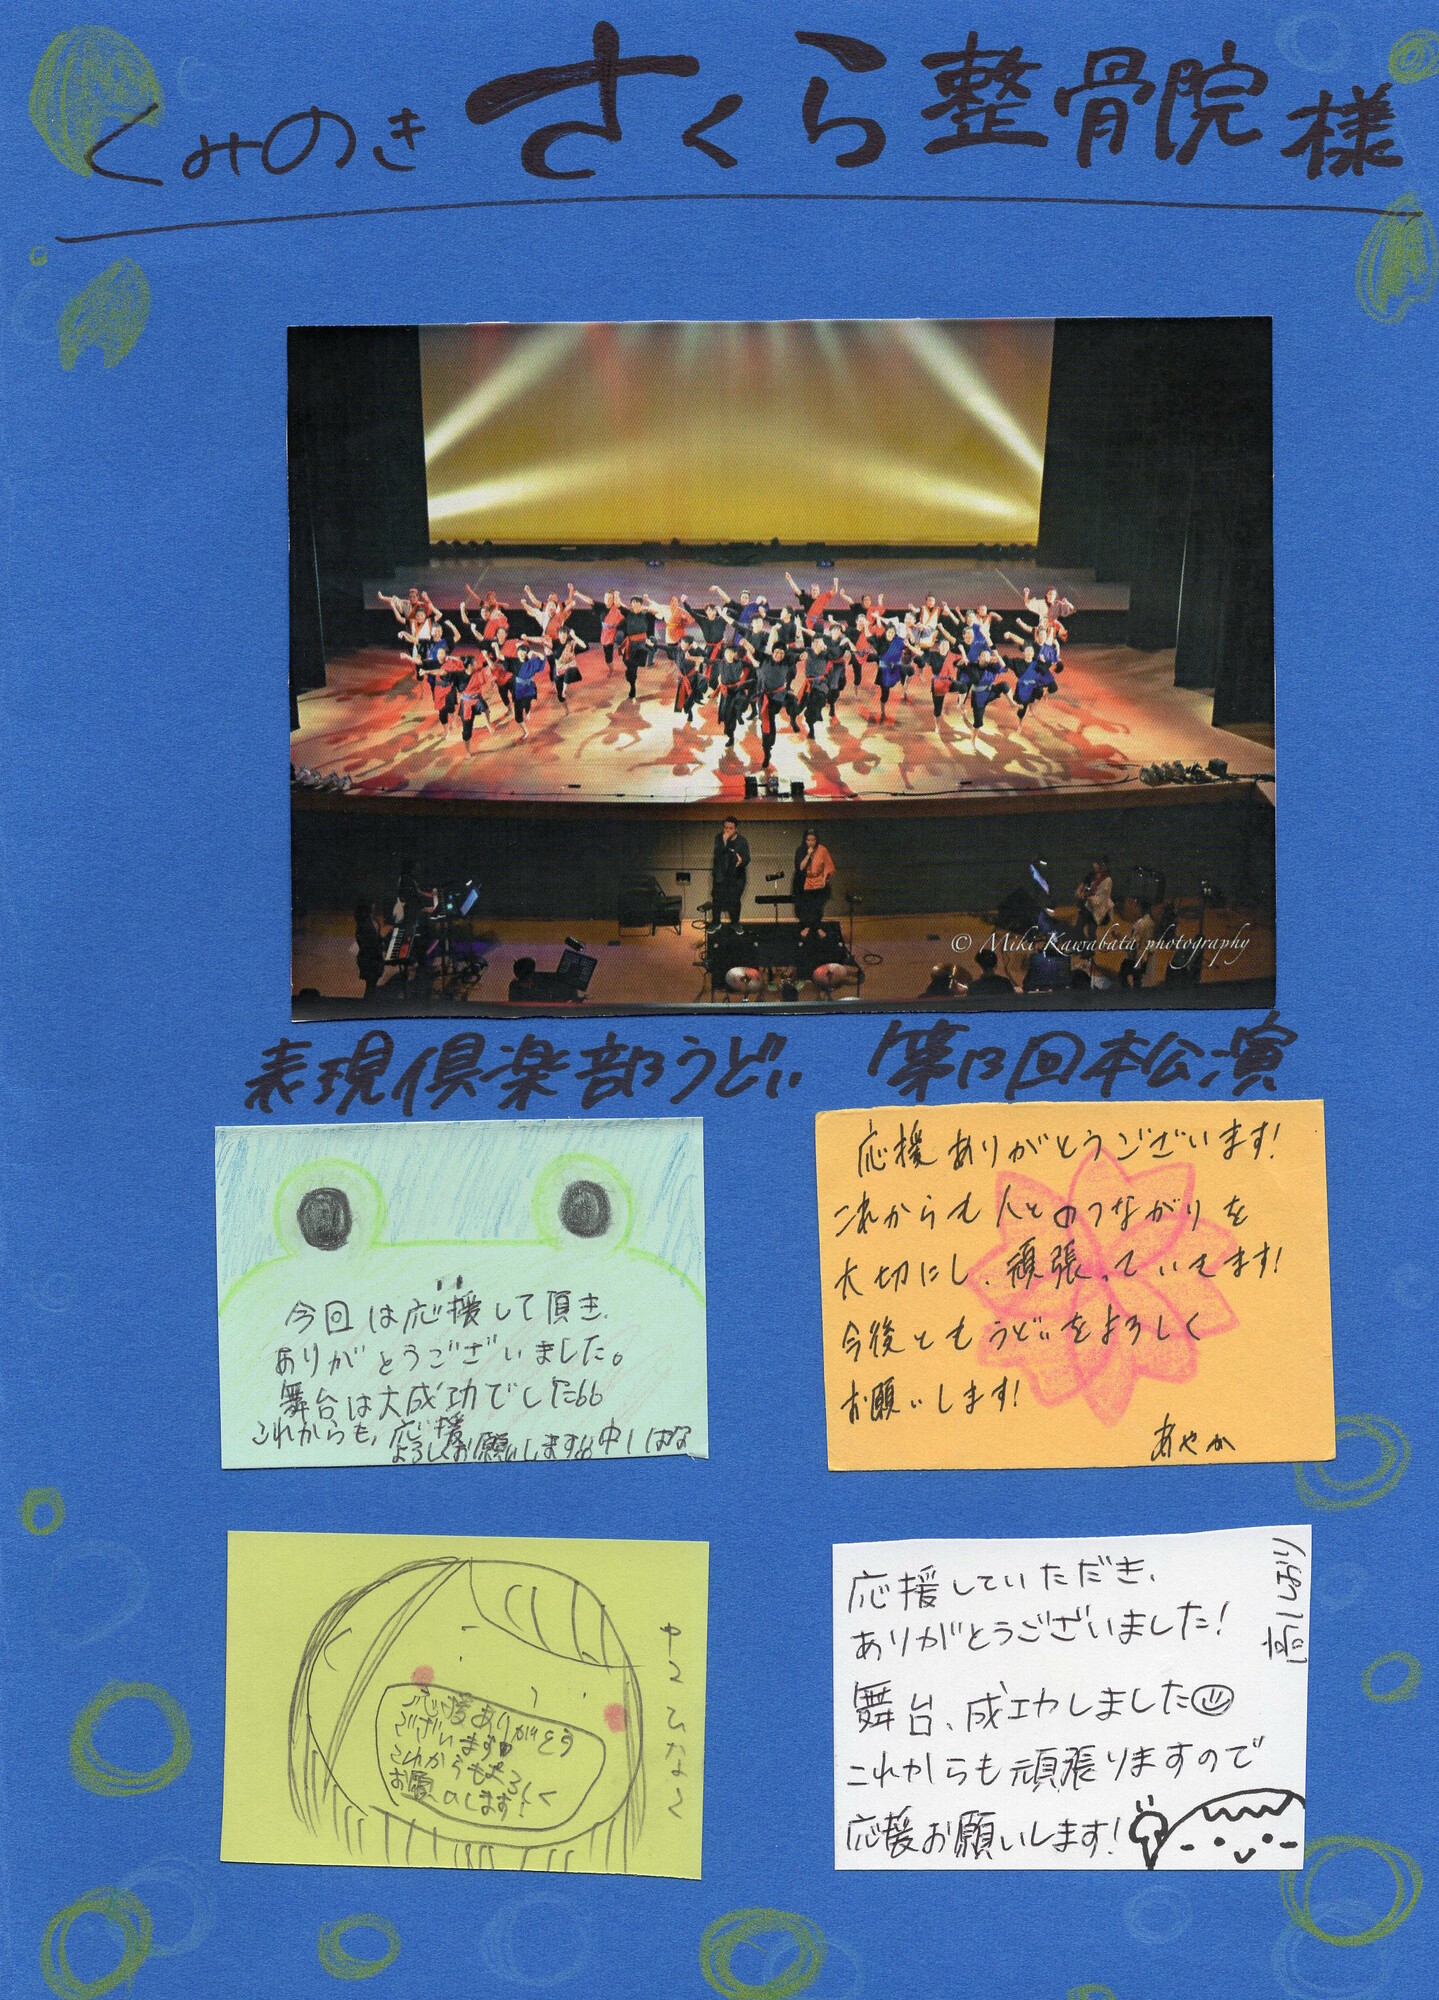 くみのき さくら整骨院様
© Miki Kawabata photography
表現倶楽部うどぃ 第13回本公演
今回は応援して頂き、
ありがとうございました。
舞台は大成功でした
これからも、応援
よろしくお願いします 中1 はな
応援ありがとうございます!
これからも人とのつながりを
大切にし、頑張っていきます!
今後ともうどぃをよろしく
お願いします!
あやか
応援ありがとう
ございます
これからもよろしく
お願いします!
中2 ひなこ
応援していただき、
ありがとうございました!
舞台、成功しました
これからも頑張りますので
応援お願いします!
高1 しおり